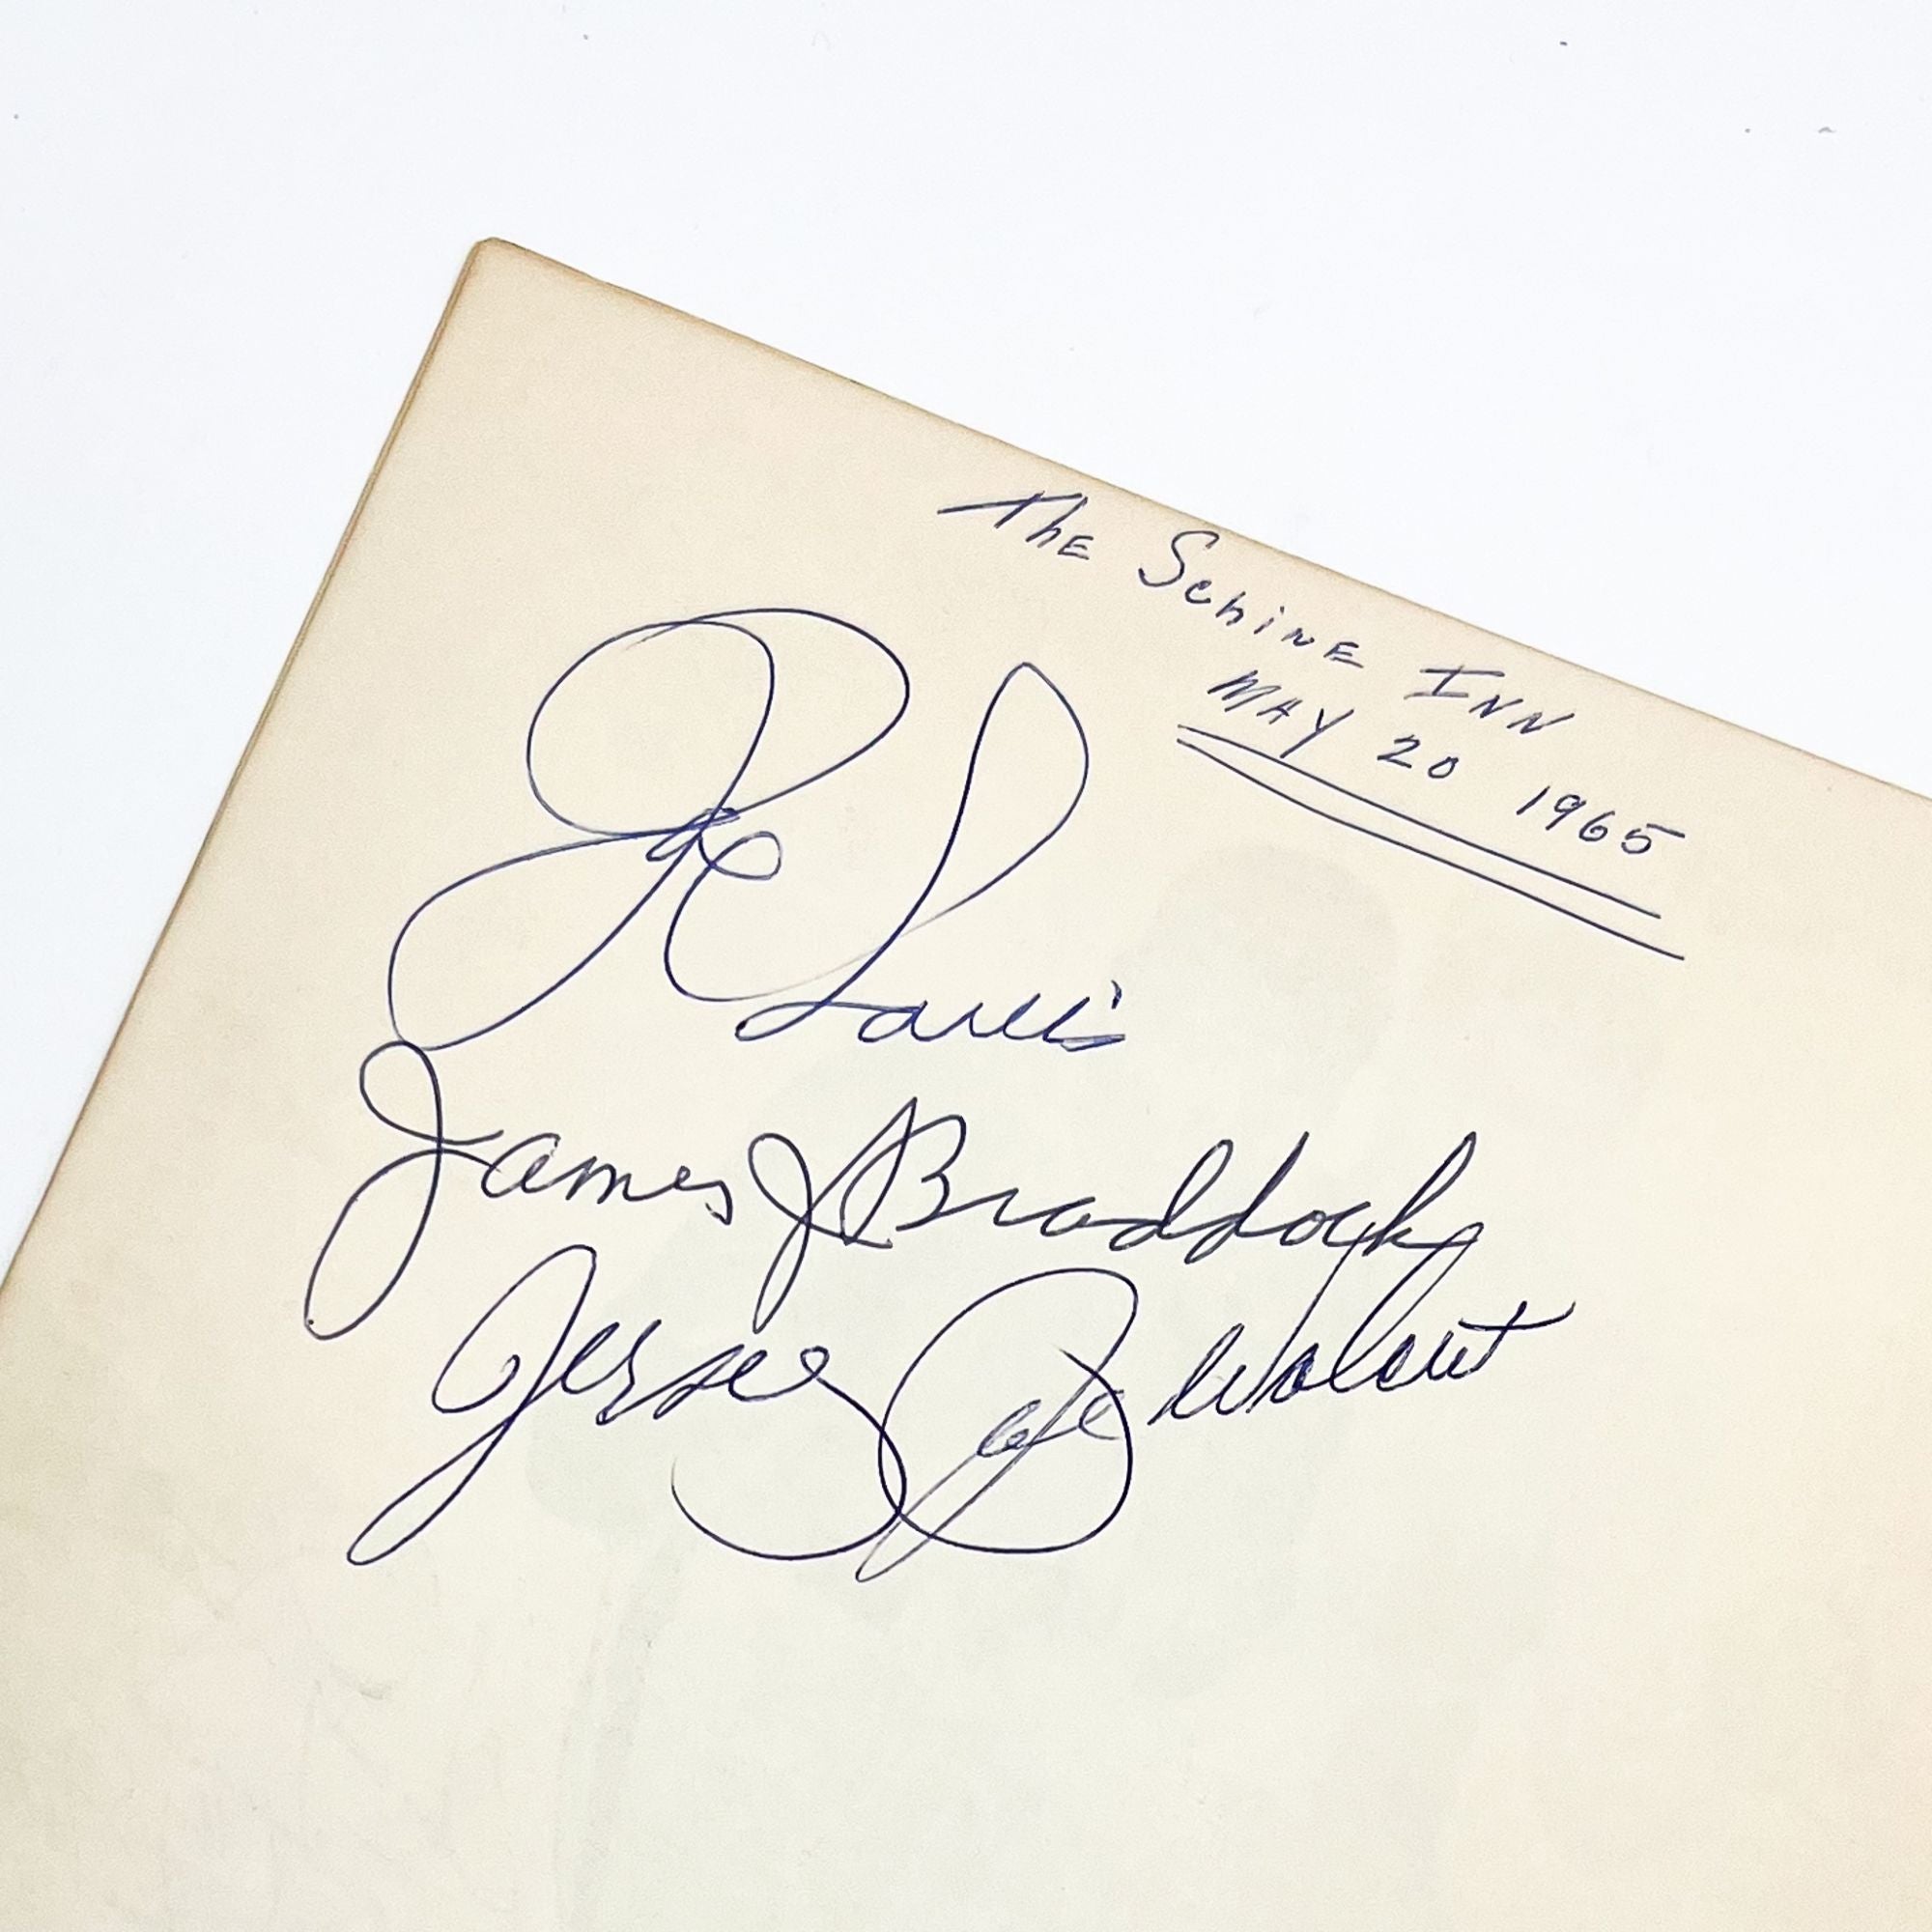 The Schine Inn
May 20 1965
Joe Louis
James J Braddock
Jersey Joe Walcott